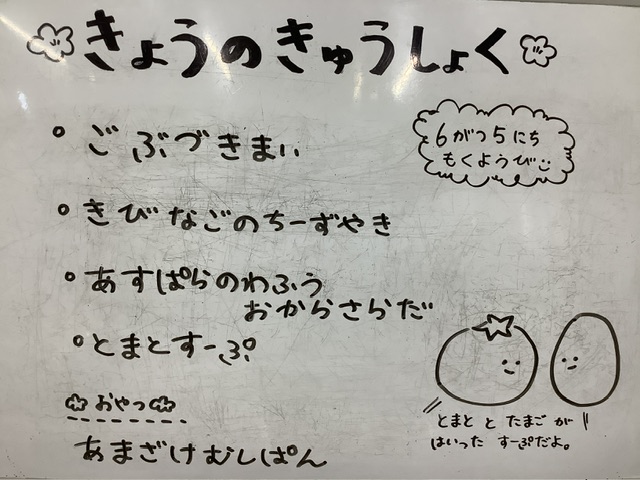 きょうのきゅうしょく
6がつ5にち
もくようび
・ごぶづきまい
・きびなごのちーずやき
・あすぱらのわふう
おからさらだ
・とまとすーぷ
おやつ
あまざけむしぱん
とまと と たまご が
はいった すーぷだよ。